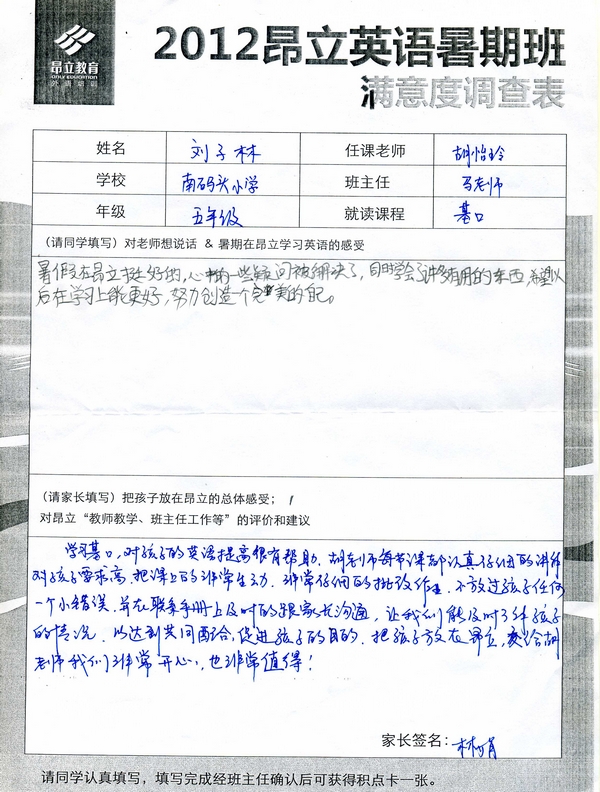 昂立教育
ONLY EDUCATION
外语培训
2012昂立英语暑期班
满意度调查表
姓名 刘子林 任课老师 胡怡玲
学校 南码头小学 班主任 马老师
年级 五年级 就读课程 基口
(请同学填写) 对老师想说话 & 暑期在昂立学习英语的感受
暑假在昂立挺好的,心中的一些疑问被解决了,自己学会了许多有用的东西,希望以
后在学习上能更好,努力创造一个完美的自己。
(请家长填写) 把孩子放在昂立的总体感受;
对昂立“教师教学、班主任工作等”的评价和建议
学习基口,对孩子的英语提高很有帮助.胡老师每节课都认真仔细的讲解
对孩子要求高.把课上的非常生动.非常仔细的批改作业.不放过孩子任何
一个小错误.并在联系手册上及时的跟家长沟通,让我们能及时了解孩子
的情况.以达到共同配合,促进孩子的目的.把孩子放在昂立,交给胡
老师我们非常开心,也非常值得!
家长签名:
请同学认真填写,填写完成经班主任确认后可获得积点卡一张。